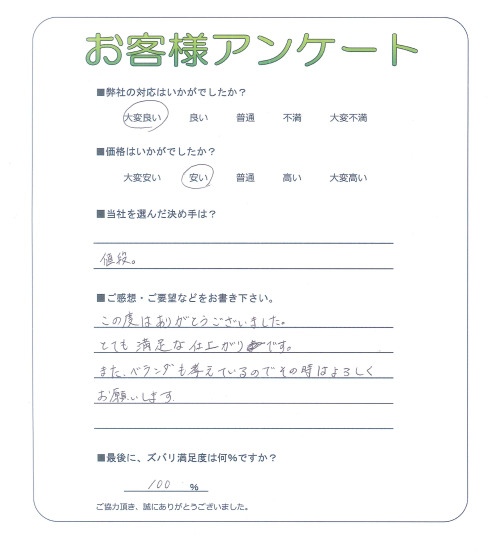 お客様アンケート
■弊社の対応はいかがでしたか？
大変良い 良い 普通 不満 大変不満
■価格はいかがでしたか？
大変安い 安い 普通 高い 大変高い
■当社を選んだ決め手は？
値段。
■ご感想・ご要望などをお書き下さい。
この度はありがとうございました。
とても満足な仕上がりです。
また、ベランダも考えているのでその時はよろしく
お願いします。
■最後に、ズバリ満足度は何%ですか？
100 %
ご協力頂き、誠にありがとうございました。